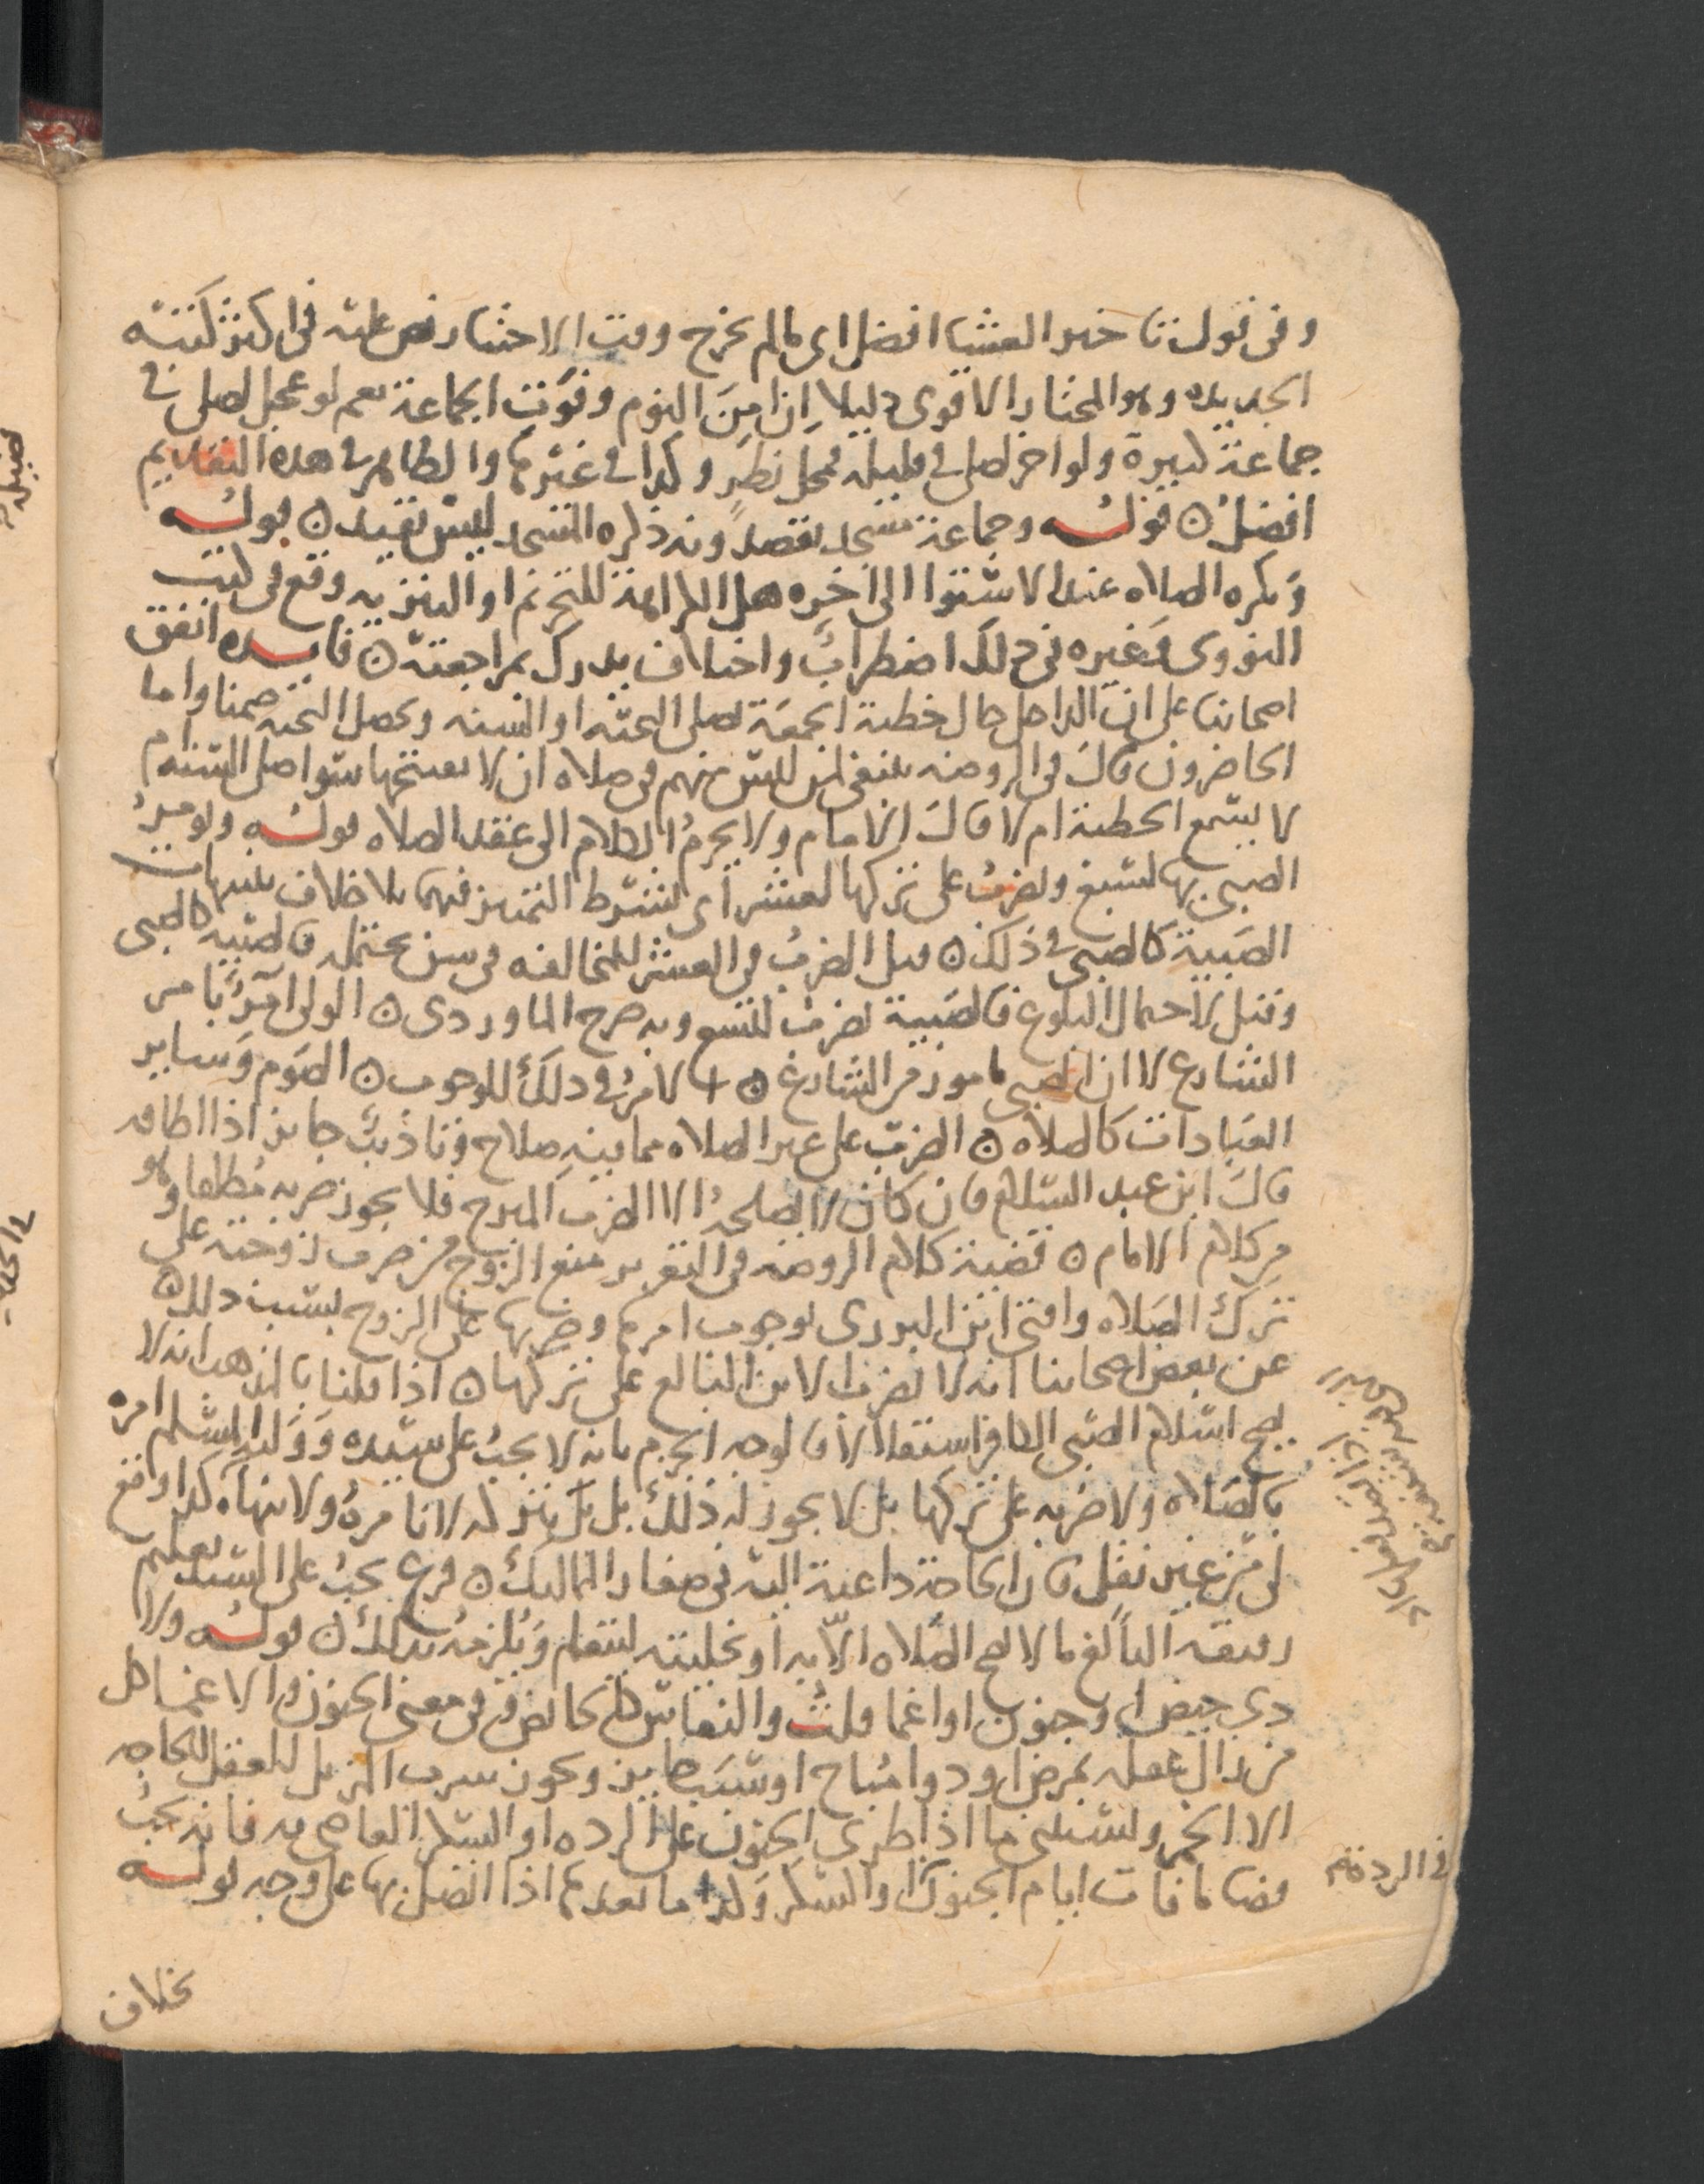 وفي قول تاخير العشا افضل اى ما لم يخرج وقت الاختيار نص عليه في اكثر كتبه
الجديده وهو المختار الاقوى دليلا اِن امِنَ النوم وفَوْتَ الجماعة نعم لو عجل لصلى في
جماعة كبيرة ولو اخر لصلى في قليله فمحل نظرٍ وكذا في غيرها والظاهر في هذه التقديم
افضل ۞ قوله وجماعة مسجد تقصد ذكره المسجد ليس تقييد ۞ قوله
وَتكره الصلاه عند الاستوا الى اخره هل الكراهة للتحريم او التنزيه وقع في كتب
النووى وغيره في ذلك اضطرابٌ واختلاف يدرك بمراجعته ۞ فايده اتفق
اصحابنا على ان الداخل حال خطبة الجمعة يصلى التحيه او السنه وتحصل التحيه ضمنا واما
الحاضرون قال في الروضه ينبغي لمن ليس منهم في صلاه ان لا يفتتحها سوا صلى السنه ام
لا يسمع الخطبة ام لا قال الامام ولا يحرمُ الكلام الى عقد الصلاه قوله ويومرُ
الصبى بها لسبع ويضربُ على تركها لعشر اى بشرط التمييز فيهما بلا خلاف تنبيهات
الصَبية كالصبى في ذلك ۞ قيل الضربُ في العشر للمخالفه في سن يحتمله فالصبيه كالصبى
وقيل لاحتمال البلوغ فالصَبية تضرب للتسع وبه صرح الماوردى ۞ الولى آمرٌ بامر
الشارع لا ان الصبى مامور من الشارع ۞ الامرُ في ذلك للوجوب ۞ الصَوم وَساير
العبادات كالصلاه ۞ الضربُ على غير الصلاه مما فيه صلاح وتاديبٌ جايز اذا اطاقه
قال ابن عبد السلام فان كان لا يصلحهُ الا الضرب المبرح فلا يجوز ضربه مُطلقا وهو
من كلام الامام ۞ قضية كلام الروضه في التعزير منع الزوج من ضرب زوجته على
ترك الصلاه وافتى ابن البزرى بوجوب امرها وضربها على الزوج بسبب ذلك ۞
عن بعض اصحابنا انه لا يضرب الابن البالغ على تركها ۞ اذا قلنا بالمذهب انه لا
يصح اسلام الصبى الكافر استقلالا فالوجه الجزم بانه لا يجبُ على سيده وَوَليهِ المسلم امره
بالصلاه ولا ضربه على تركها بل لا يجوز له ذلك بل يتركه لا يامرهُ ولا ينهاه كذا وقع
لى من غير نقل فان الحاجة داعية اليه في صغار المماليك ۞ فرع يجبُ على السيد تعليم
رقيقه البالغ ما لا تصح الصلاه الاّ به او تخليته ليتعلم وَيُلزمهُ بذلك ۞ قوله ولا
ذى حيض او جنون او اغما قلتُ والنفاس كالحائض وفي معنى الجنون والاغما كل
من زال عقله بمرض او دوا مُباح او سَبب جايز ويجوز شرب المزيل للعقل للحاجه
الا الخمر ويستثنى ما اذا طرى الجنون على الرده او السكر العاصى به فانه يجبُ
قضا ما فات ايام الجنون والسكر وَكذا ما بعدها اذا اتصل بها على وجه قوله
في الردة
بخلاف